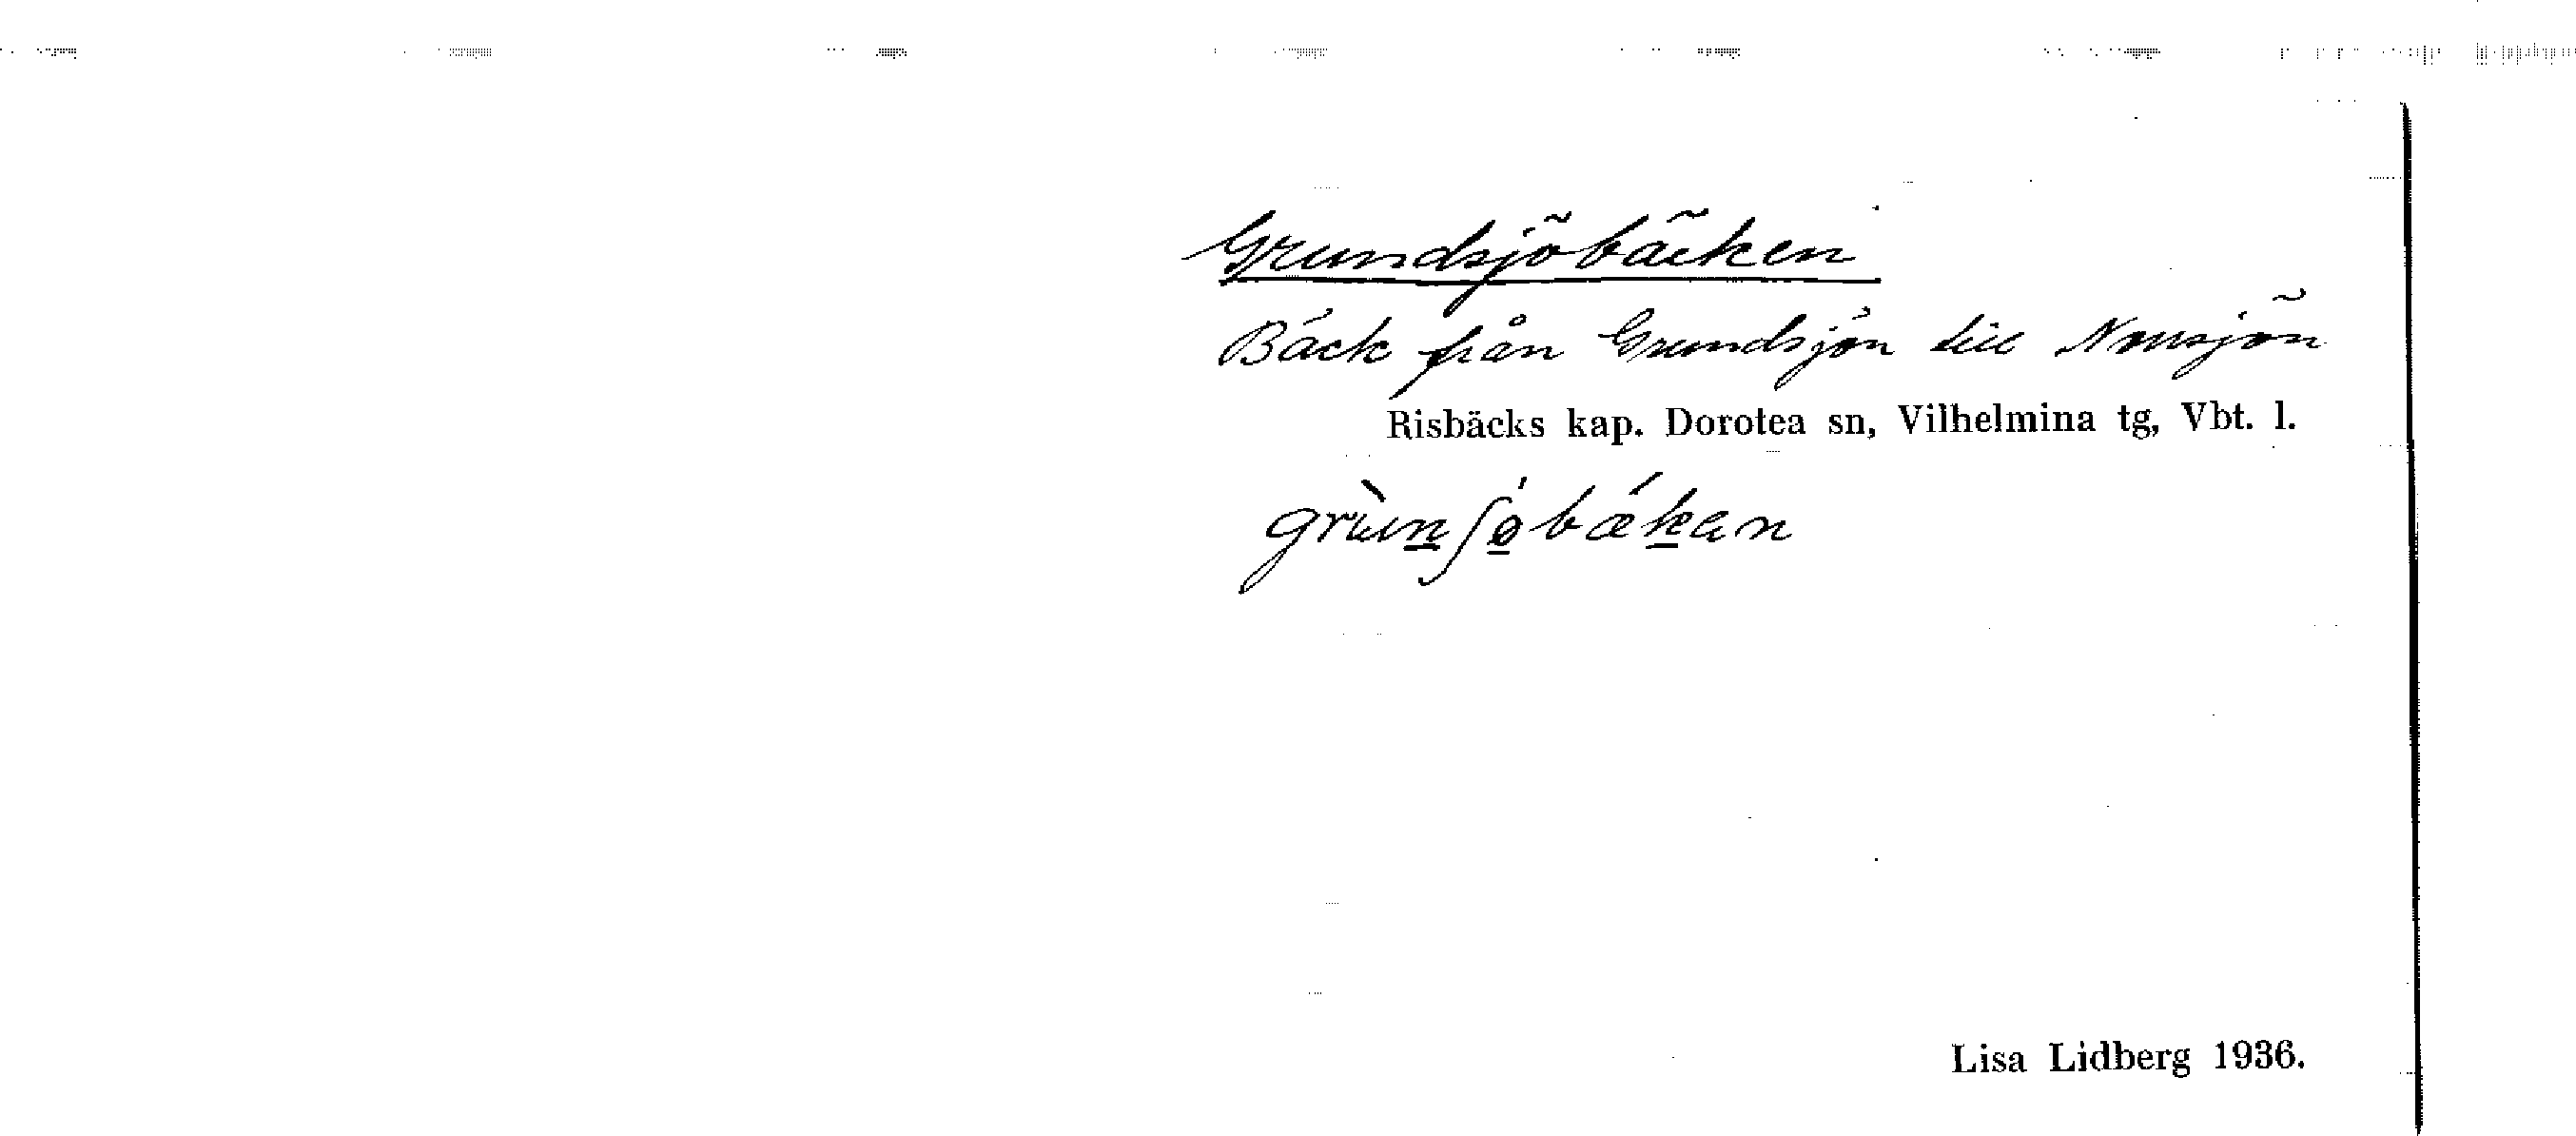 Grundsjöbäcken
Bäck från Grundsjön till
Risbäcks kap. Dorotea sn, Vilhelmina tg, Vbt. l.
Lisa Lidberg 1936.